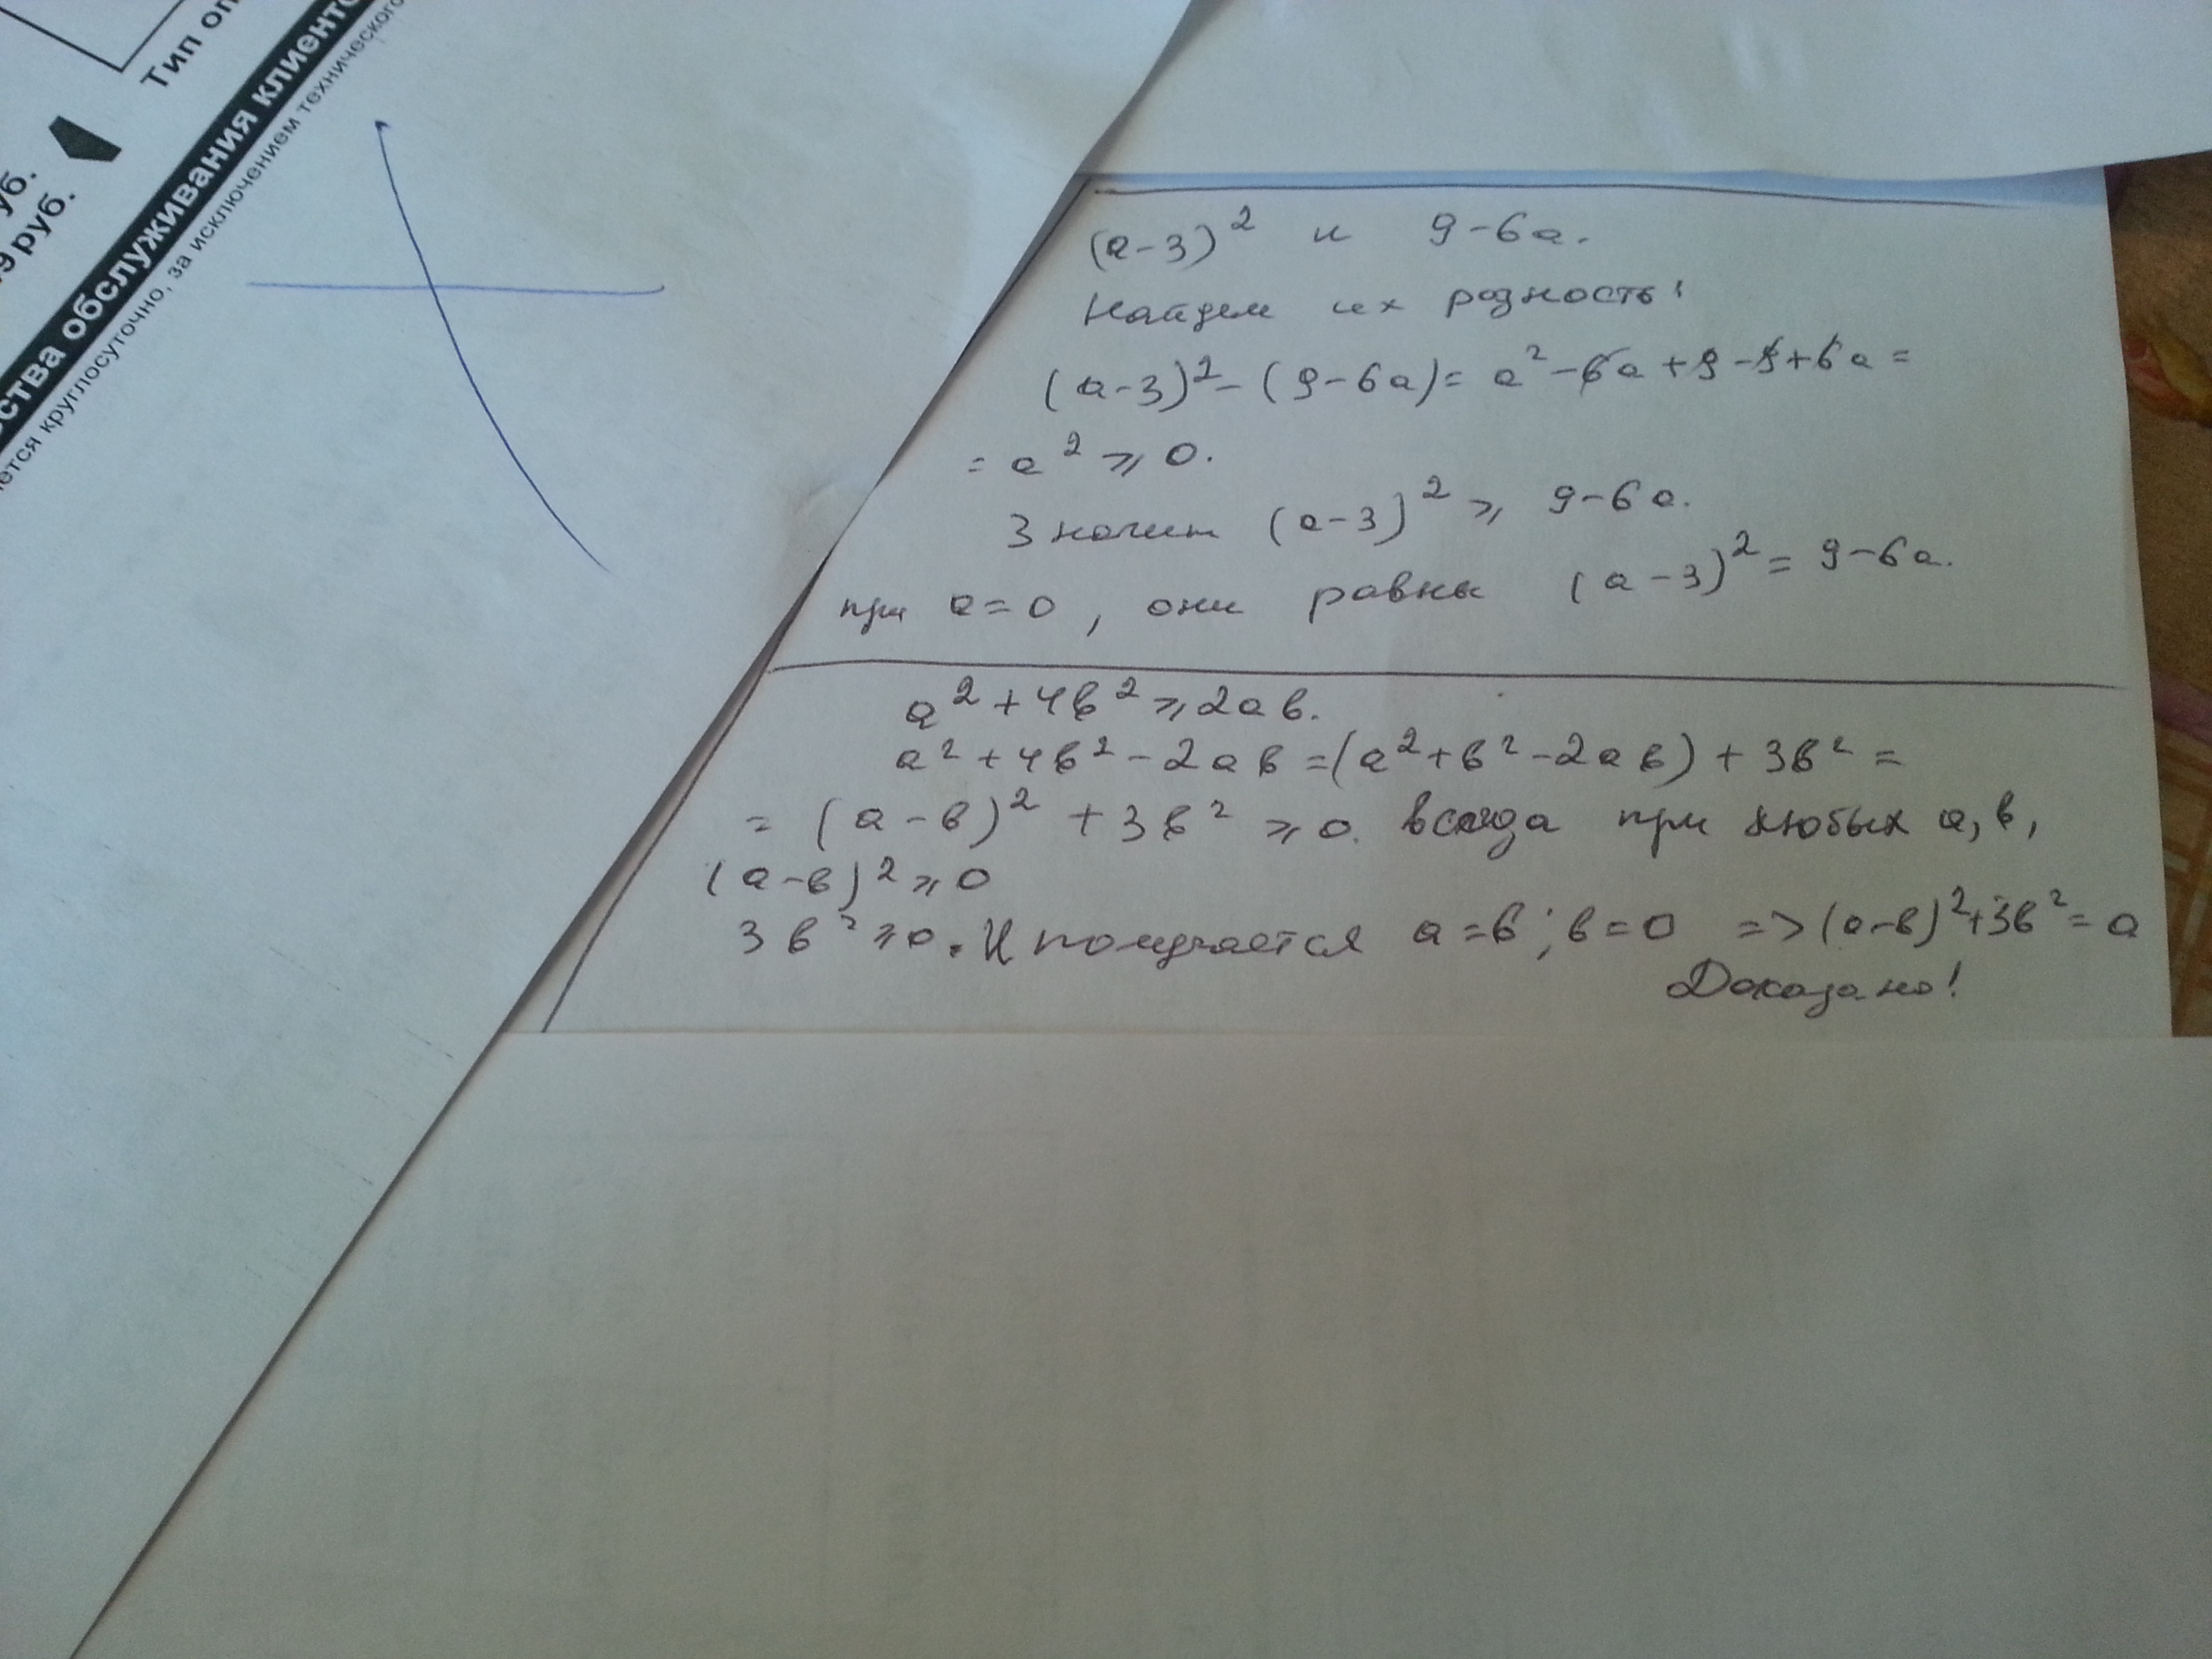 Тип оп
уб.
9 руб.
ства обслуживания клиенто
ется круглосуточно, за исключением технического
(a-3)² и 9-6a.
Найдем их разность:
(a-3)²-(9-6a)= a²-6a+9-9+6a=
= a² ⩾ 0.
Значит (a-3)² ⩾ 9-6a.
при a=0, они равны (a-3)²= 9-6a.
a²+4b²⩾2ab.
a²+4b²-2ab=(a²+b²-2ab)+3b²=
= (a-b)²+3b² ⩾0. всегда при любых a, b,
(a-b)²⩾0
3b²⩾0. И получается a=b; b=0 => (a-b)²+3b²=0
Доказано!